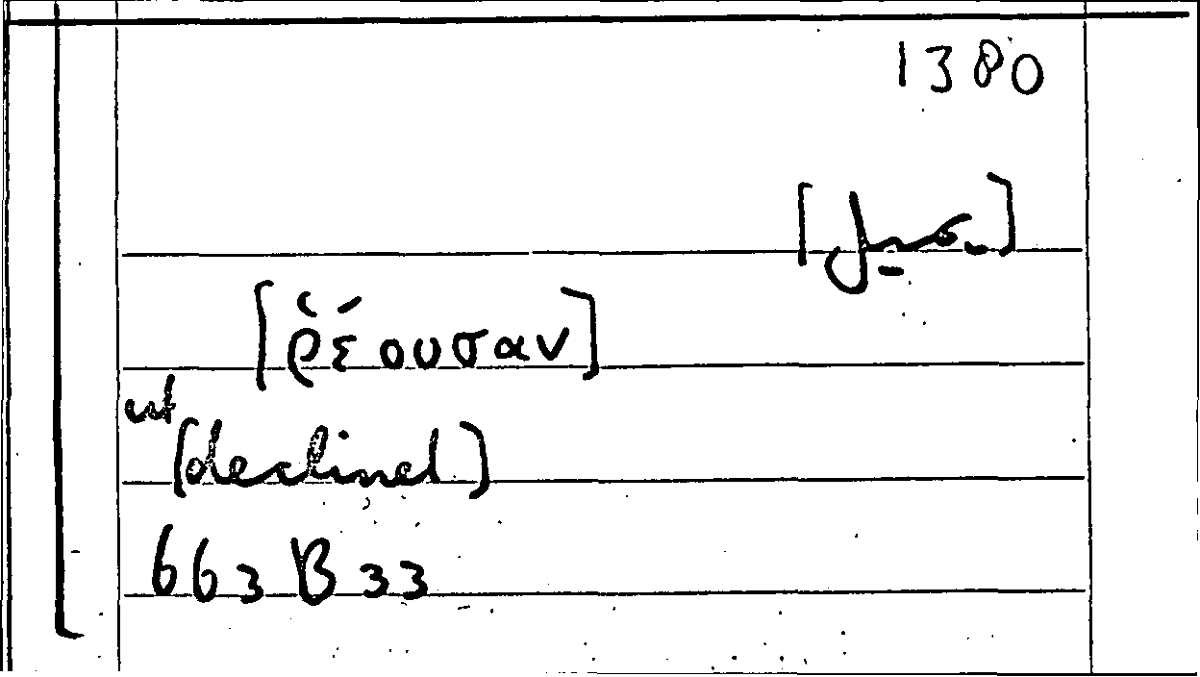 1380
[ῥέουσαν]
[declined]
663 B 33